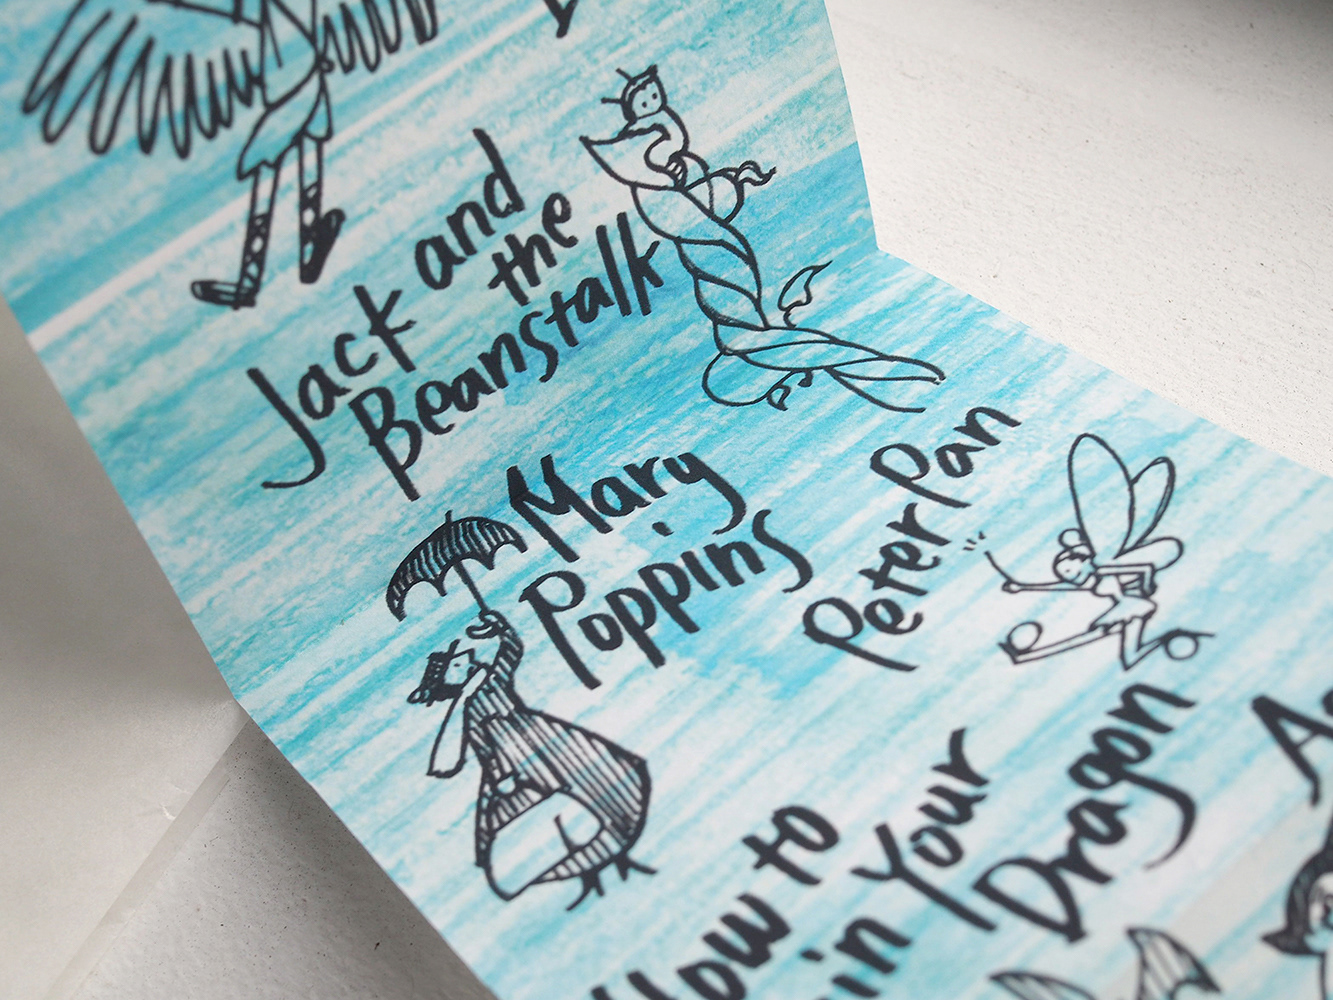 Jack and
the
Beanstalk
Mary
Poppins
Peter Pan
How to
in Your
Dragon